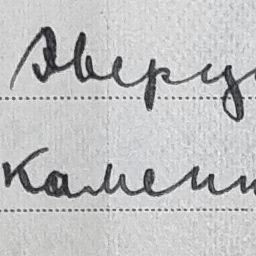 Аверц
камени